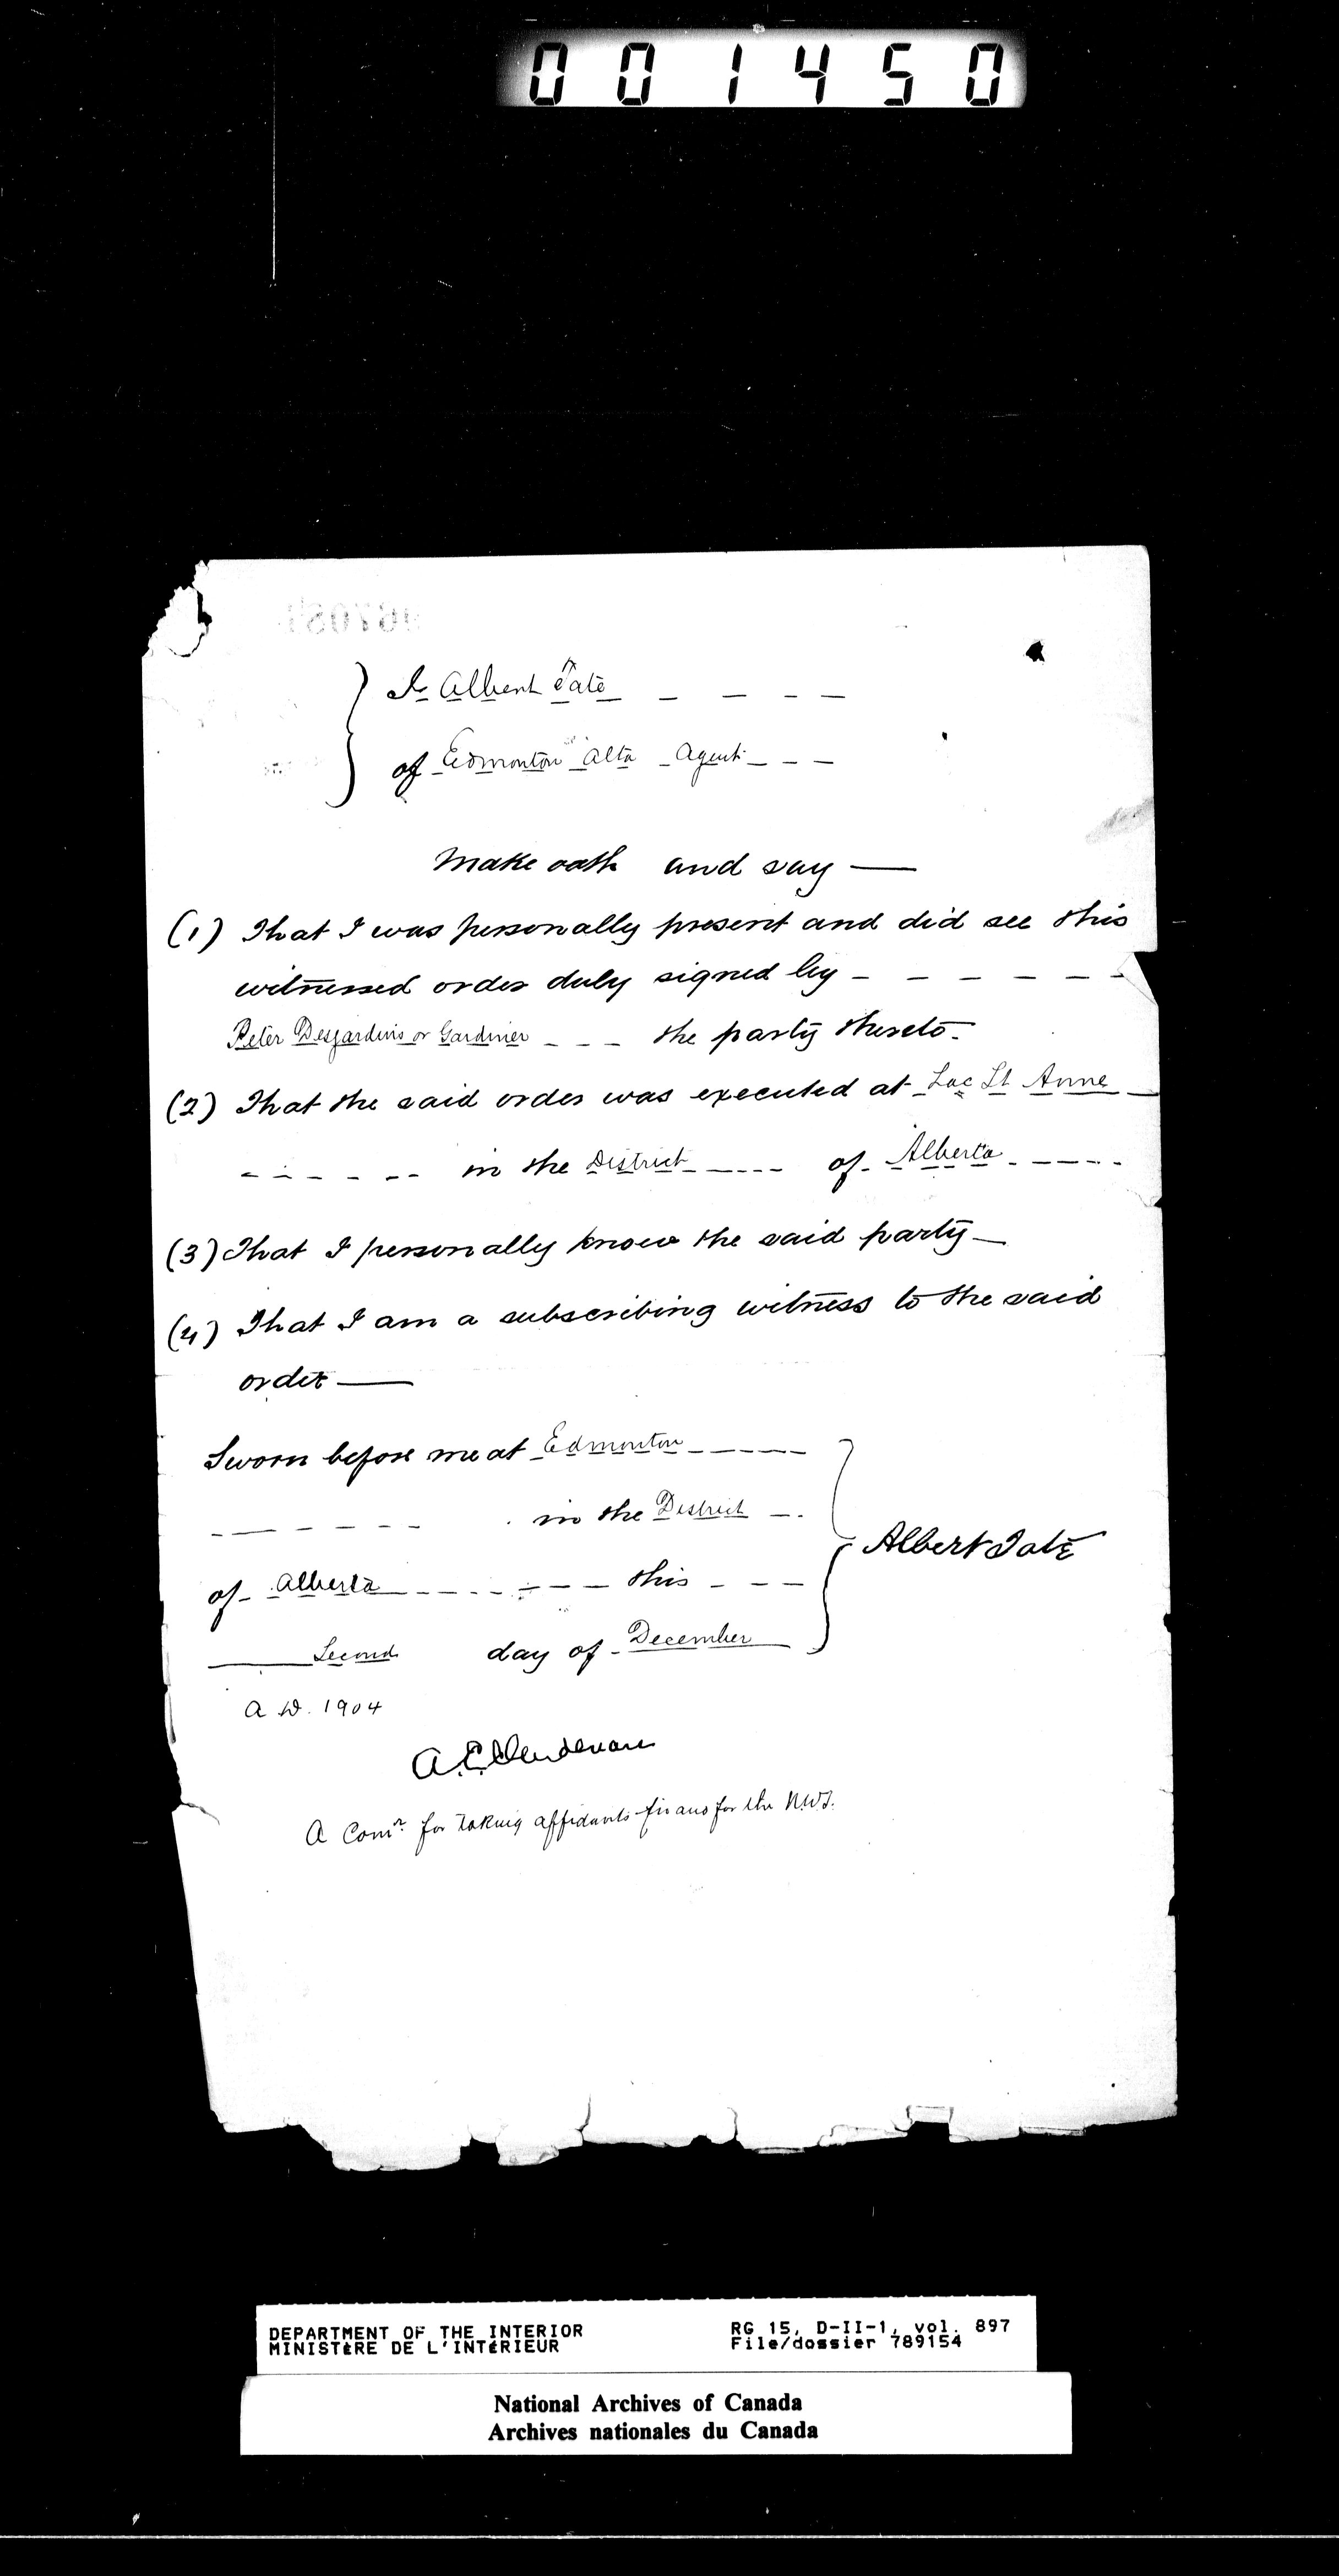 001450
I Albert Tate
of Edmonton Alta Agent
Make oath and say —
(1) That I was personally present and did see this
witnessed order duly signed by
Peter Desjardins or Gardiner the party thereto.
(2) That the said order was executed at Lac St Anne
in the District of Alberta
(3) That I personally know the said party —
(4) That I am a subscribing witness to the said
order —
Sworn before me at Edmonton
in the District
of Alberta this
Second day of December
Albert Tate
A.D. 1904
A Comr. for taking affidavits in and for the N.W.T.
DEPARTMENT OF THE INTERIOR
MINISTÈRE DE L'INTÉRIEUR
RG 15, D-II-1, vol. 897
File/dossier 789154
National Archives of Canada
Archives nationales du Canada